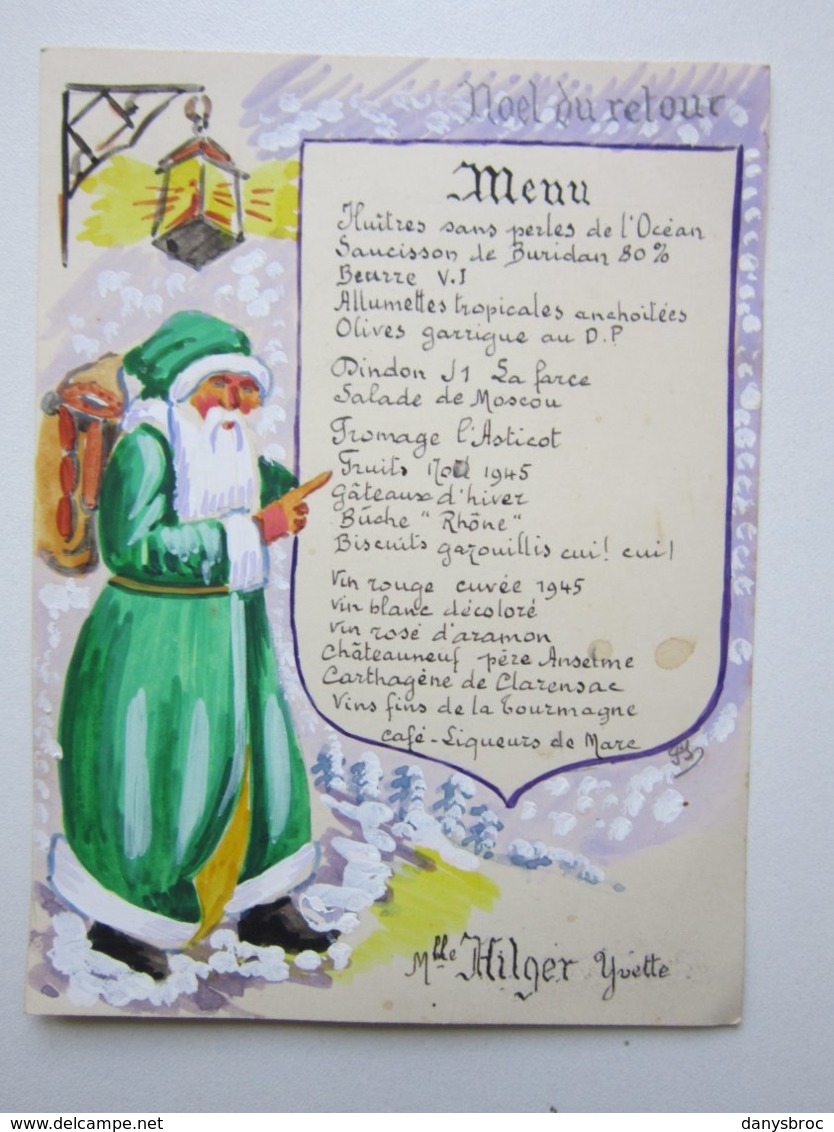 Noel du retour
Menu
Huîtres sans perles de l'Océan
Saucisson de Buridan 80%
Beurre V.J
Allumettes tropicales anchoitées
Olives garrigue au D.P
Dindon J1 La farce
Salade de Moscou
Fromage l'Asticot
Fruits Noël 1945
Gâteaux d'hiver
Bûche "Rhône"
Biscuits gazouillis cui! cui!
Vin rouge cuvée 1945
Vin blanc décoloré
Vin rosé d'aramon
Châteauneuf père Anselme
Carthagène de Clarensac
Vins fins de la Tourmagne
café - Liqueurs de Marc
Mlle Hilger Yvette
delcampe.net
danysbroc